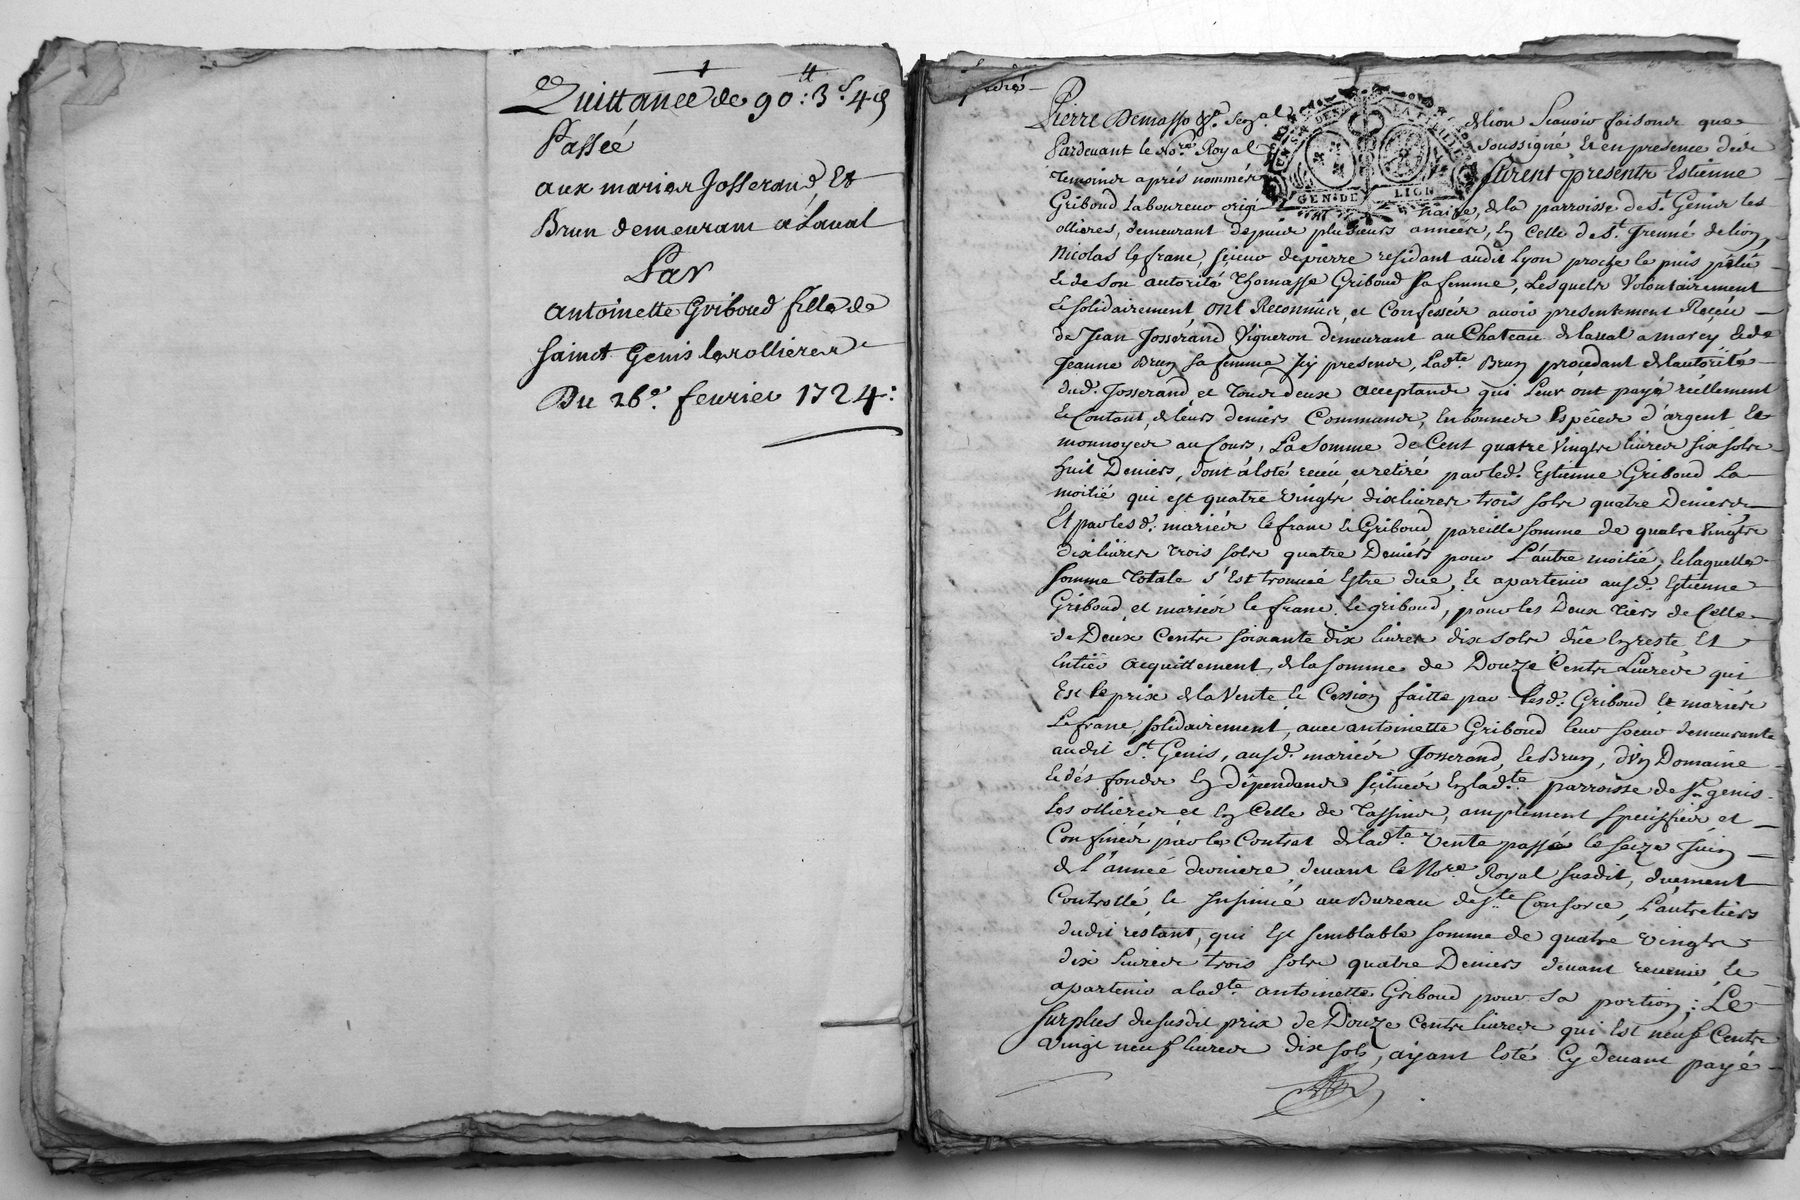 Quittance de 90 tt : 3 s. 4 d
Passée
aux mariés Josserand Et
Brun demeurant a Laval
Par
Antoinette Griboud fille de
Sainct Genis les ollieres
Du 26e. fevrier 1724 :
Pierre Demasso
GEN. DE LION
delion Scavoir faisons que
Pardevant le Nore. Royal soussigné et en presence des
temoins aprés nommés furent presents Estienne
Griboud Laboureur originaire, de la parroisse de St. Genis les
ollieres, demeurant depuis plusieurs années, En Celle de St. Irenné delion,
Nicolas le franc, de pierre residant audit Lyon proche le puis
Et de Son autorité Thomasse Griboud Sa femme, Lesquels Volontairement
Et solidairement, ont Reconnus, et Confessés avoir presentement Receu
de Jean Josserand Vigneron demeurant au Chateau de laval a marcy Et de
Jeanne Brun Sa femme Icy presents, Ladte. Brun procedant de lautorité
dud. Josserand et Tous deux acceptants qui Leur ont payé réellement
Et Contant, de leurs deniers Communs, En bonnes Especes d'argent Et
monnoyes au Cours, La Somme de Cent quatre Vingts livres six sols
huit Deniers, dont a Esté receu et retiré par led. Estienne Griboud La
moitié qui est quatre vingts dix livres trois sols quatre Deniers
Et par lesd. mariés le franc Et Griboud, pareille somme de quatre Vingts
dix livres trois sols quatre Deniers pour L'autre moitié, Et laquelle
Somme Totale s'Est trouvée Estre due, Et apartenir ausd. Estienne
Griboud et mariés le franc Et griboud, pour les Deux tiers de Celle
de Deux Cents soixante dix livres dix sols düe En reste, Et
Entier acquittement, de la somme de Douze Cents Livres qui
Est le prix de la Vente Et Cession faitte par lesd. Griboud Et mariés
Le franc, solidairement, avec antoinette Griboud leur soeur demeurante
audit St. Genis, ausd. mariés Josserand, Et Brun, d'un Domaine
Et des fonds En dépendants scitués En lad.te parroisse de St. genis
les ollieres et En Celle de Tassins, amplement specifiés et
Confinés par le Contrat de lad.te Vente passé le seize Juin
de l'année derniere, devant le Nore. Royal susdit, duement
Controllé, Et Insinué au Bureau de Ste. Consorce, L'autre tiers
dudit restant, qui Est semblable somme de quatre Vingts
dix Livres trois sols quatre Deniers devant revenir, Et
apartenir a lad.te antoinette Griboud pour sa portion ; Le
surplus du susdit prix de Douze Cents livres qui Est neuf Cents
vingt neuf livres dix sols, aÿant Esté Cy devant payé